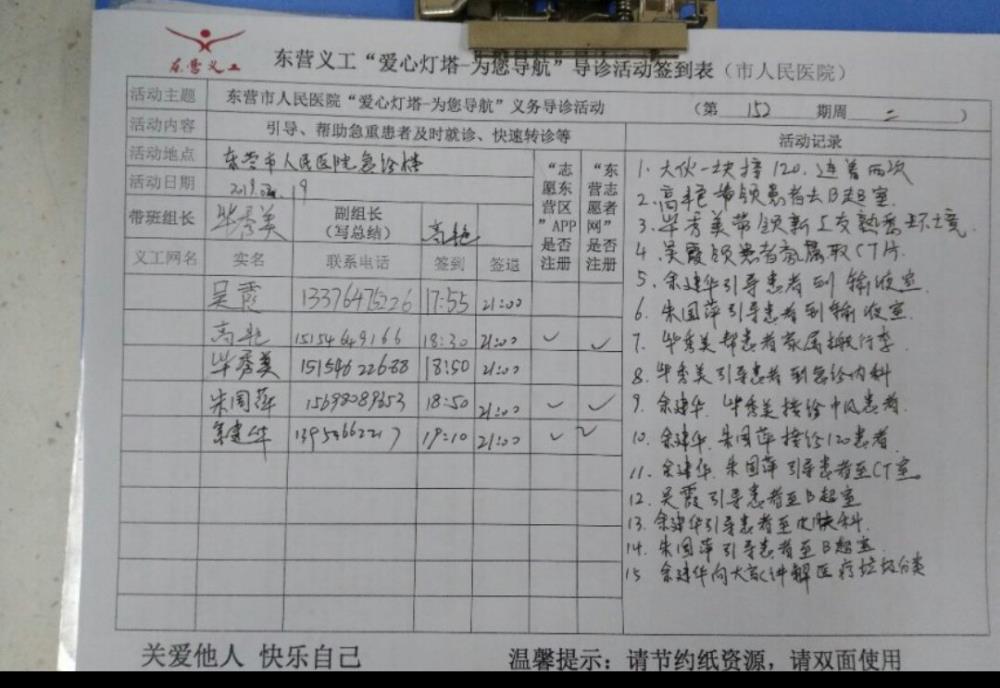 东营义工
东营义工“爱心灯塔-为您导航”导诊活动签到表（市人民医院）
活动主题 东营市人民医院“爱心灯塔-为您导航”义务导诊活动 （第 152 期周 二 ）
活动内容 引导、帮助急重患者及时就诊、快速转诊等
活动地点 东营市人民医院急诊楼
活动日期 19
带班组长 毕秀美 副组长（写总结） 高艳
“志愿东营区”APP是否注册
“东营志愿者网”是否注册
义工网名 实名 联系电话 签到 签退
吴霞 13376475226 17:55 21:00
高艳 15154649166 18:30 21:00 ✓ ✓
毕秀美 15154622688 18:50 21:00
朱国萍 15698089653 18:50 21:00 ✓ ✓
余建华 19:10 21:00 ✓ ✓
活动记录
1. 大伙一块接120.连着两次
2. 高艳带领患者去B超室.
3. 毕秀美带领新义友熟悉环境.
4. 吴霞领患者家属取CT片.
5. 余建华引导患者到输液室.
6. 朱国萍引导患者到输液室.
7. 毕秀美帮患者家属搬行李.
8. 毕秀美引导患者到急诊内科
9. 余建华.毕秀美接诊中风患者.
10. 余建华.朱国萍接诊120患者.
11. 余建华.朱国萍引导患者至CT室.
12. 吴霞引导患者至B超室
13. 余建华引导患者至皮肤科.
14. 朱国萍引导患者至B超室.
15 余建华向大家讲解医疗垃圾分类
关爱他人 快乐自己
温馨提示：请节约纸资源，请双面使用